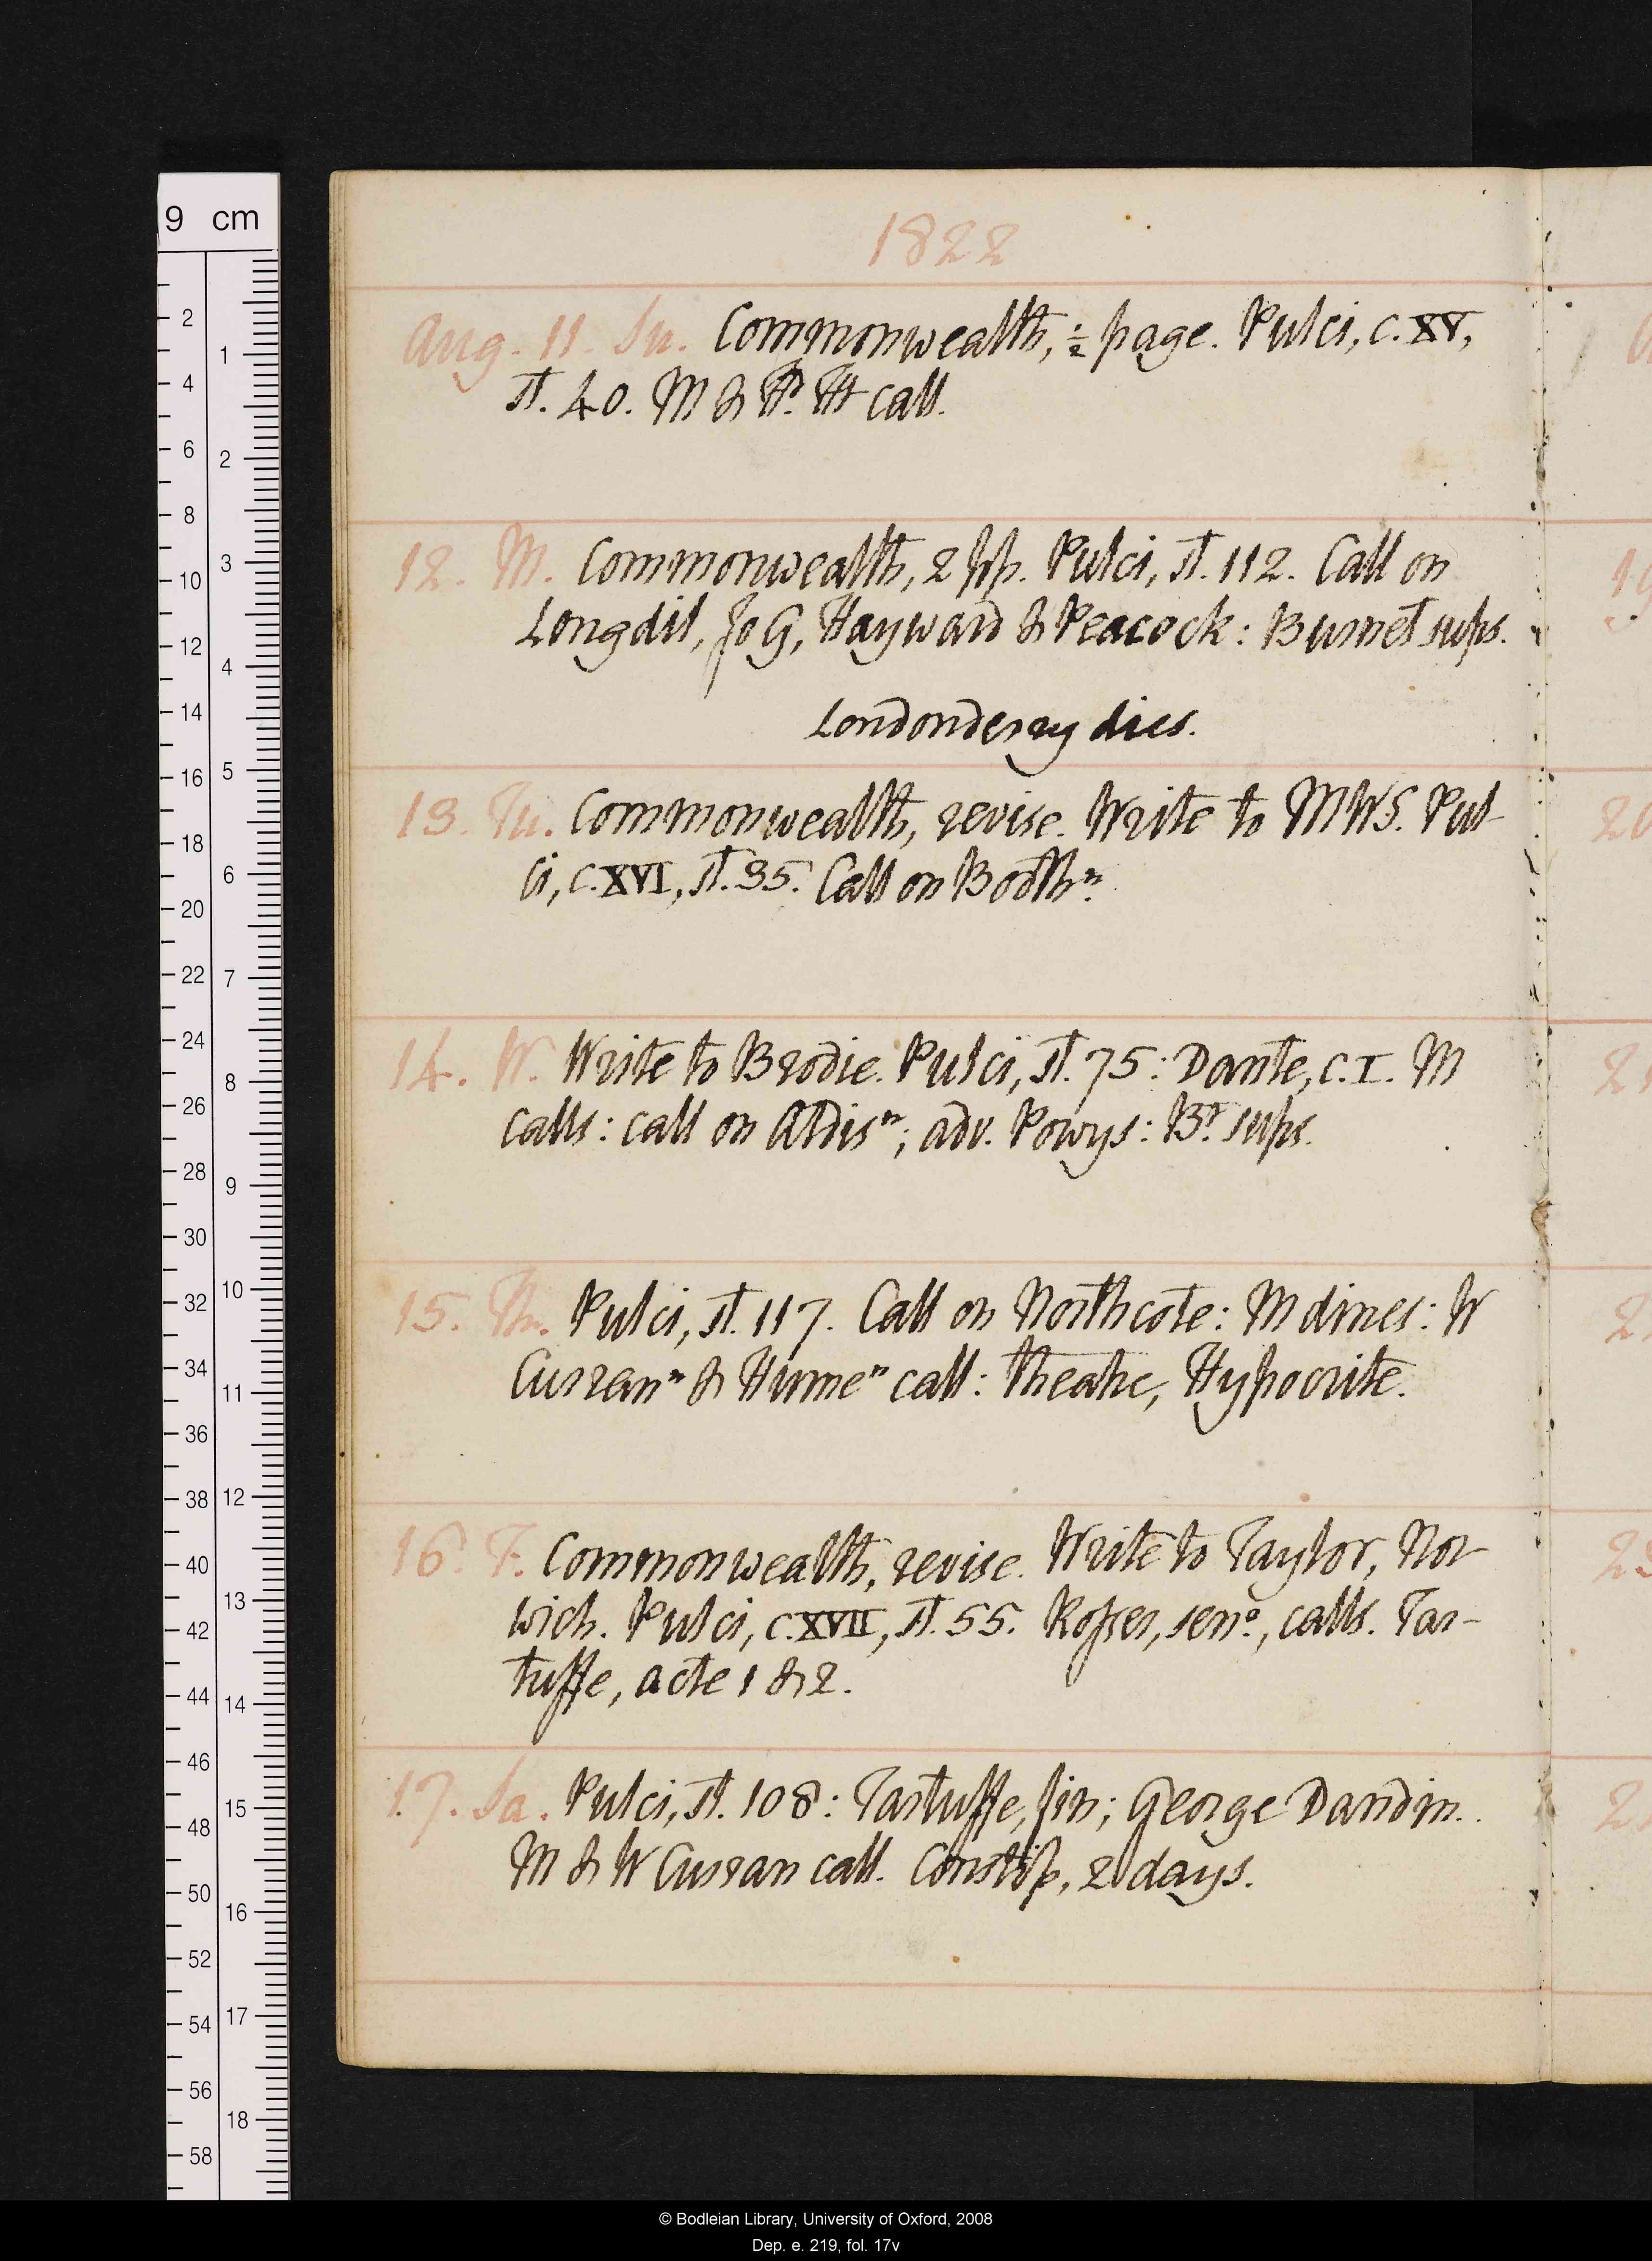 1822
Aug. 11. Su. Commonwealth, ½ page. Pulci, c. XV,
st. 40. M & Hd. H call.
12. M. Commonwealth, 2 pp. Pulci, st. 112. Call on
Longdil, Jo G, Hayward & Peacock: Burnet sups.
Londonderry dies.
13. Tu. Commonwealth, revise. Write to MWS. Pul-
ci, c. XVI, st. 35. Call on Boothn.
14. W. Write to Brodie. Pulci, st. 75: Dante, c. I. M
calls: call on Aldisn; adv. Powys: Bt. sups.
15. Th. Pulci, st. 117. Call on Northcote: M dines: W
Currann & Humen call: theatre, Hypocrite.
16. F. Commonwealth, revise. Write to Taylor, Nor-
wich. Pulci, c. XVII, st. 55. Rosser, seno., calls. Tar-
tuffe, acte 1 & 2.
17. Sa. Pulci, st. 108: Tartuffe, fin; George Dandin.
M & W Curran call. Constip, 2 days.
9 cm
2
4
6
8
10
12
14
16
18
20
22
24
26
28
30
32
34
36
38
40
42
44
46
48
50
52
54
56
58
1
2
3
4
5
6
7
8
9
10
11
12
13
14
15
16
17
18
© Bodleian Library, University of Oxford, 2008
Dep. e. 219, fol. 17v